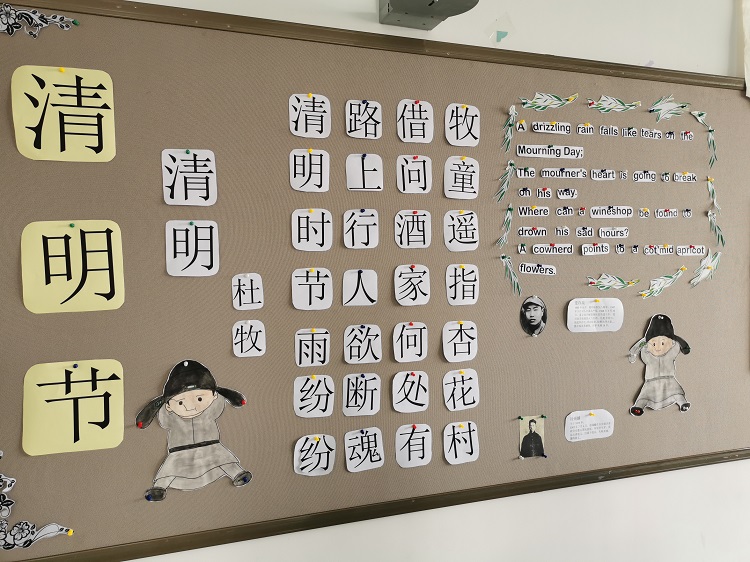 清明节
清明
杜牧
清明时节雨纷纷
路上行人欲断魂
借问酒家何处有
牧童遥指杏花村
A drizzling rain falls like tears on the
Mourning Day;
The mourner's heart is going to break
on his way.
Where can a wineshop be found to
drown his sad hours?
A cowherd points to a cot'mid apricot
flowers.